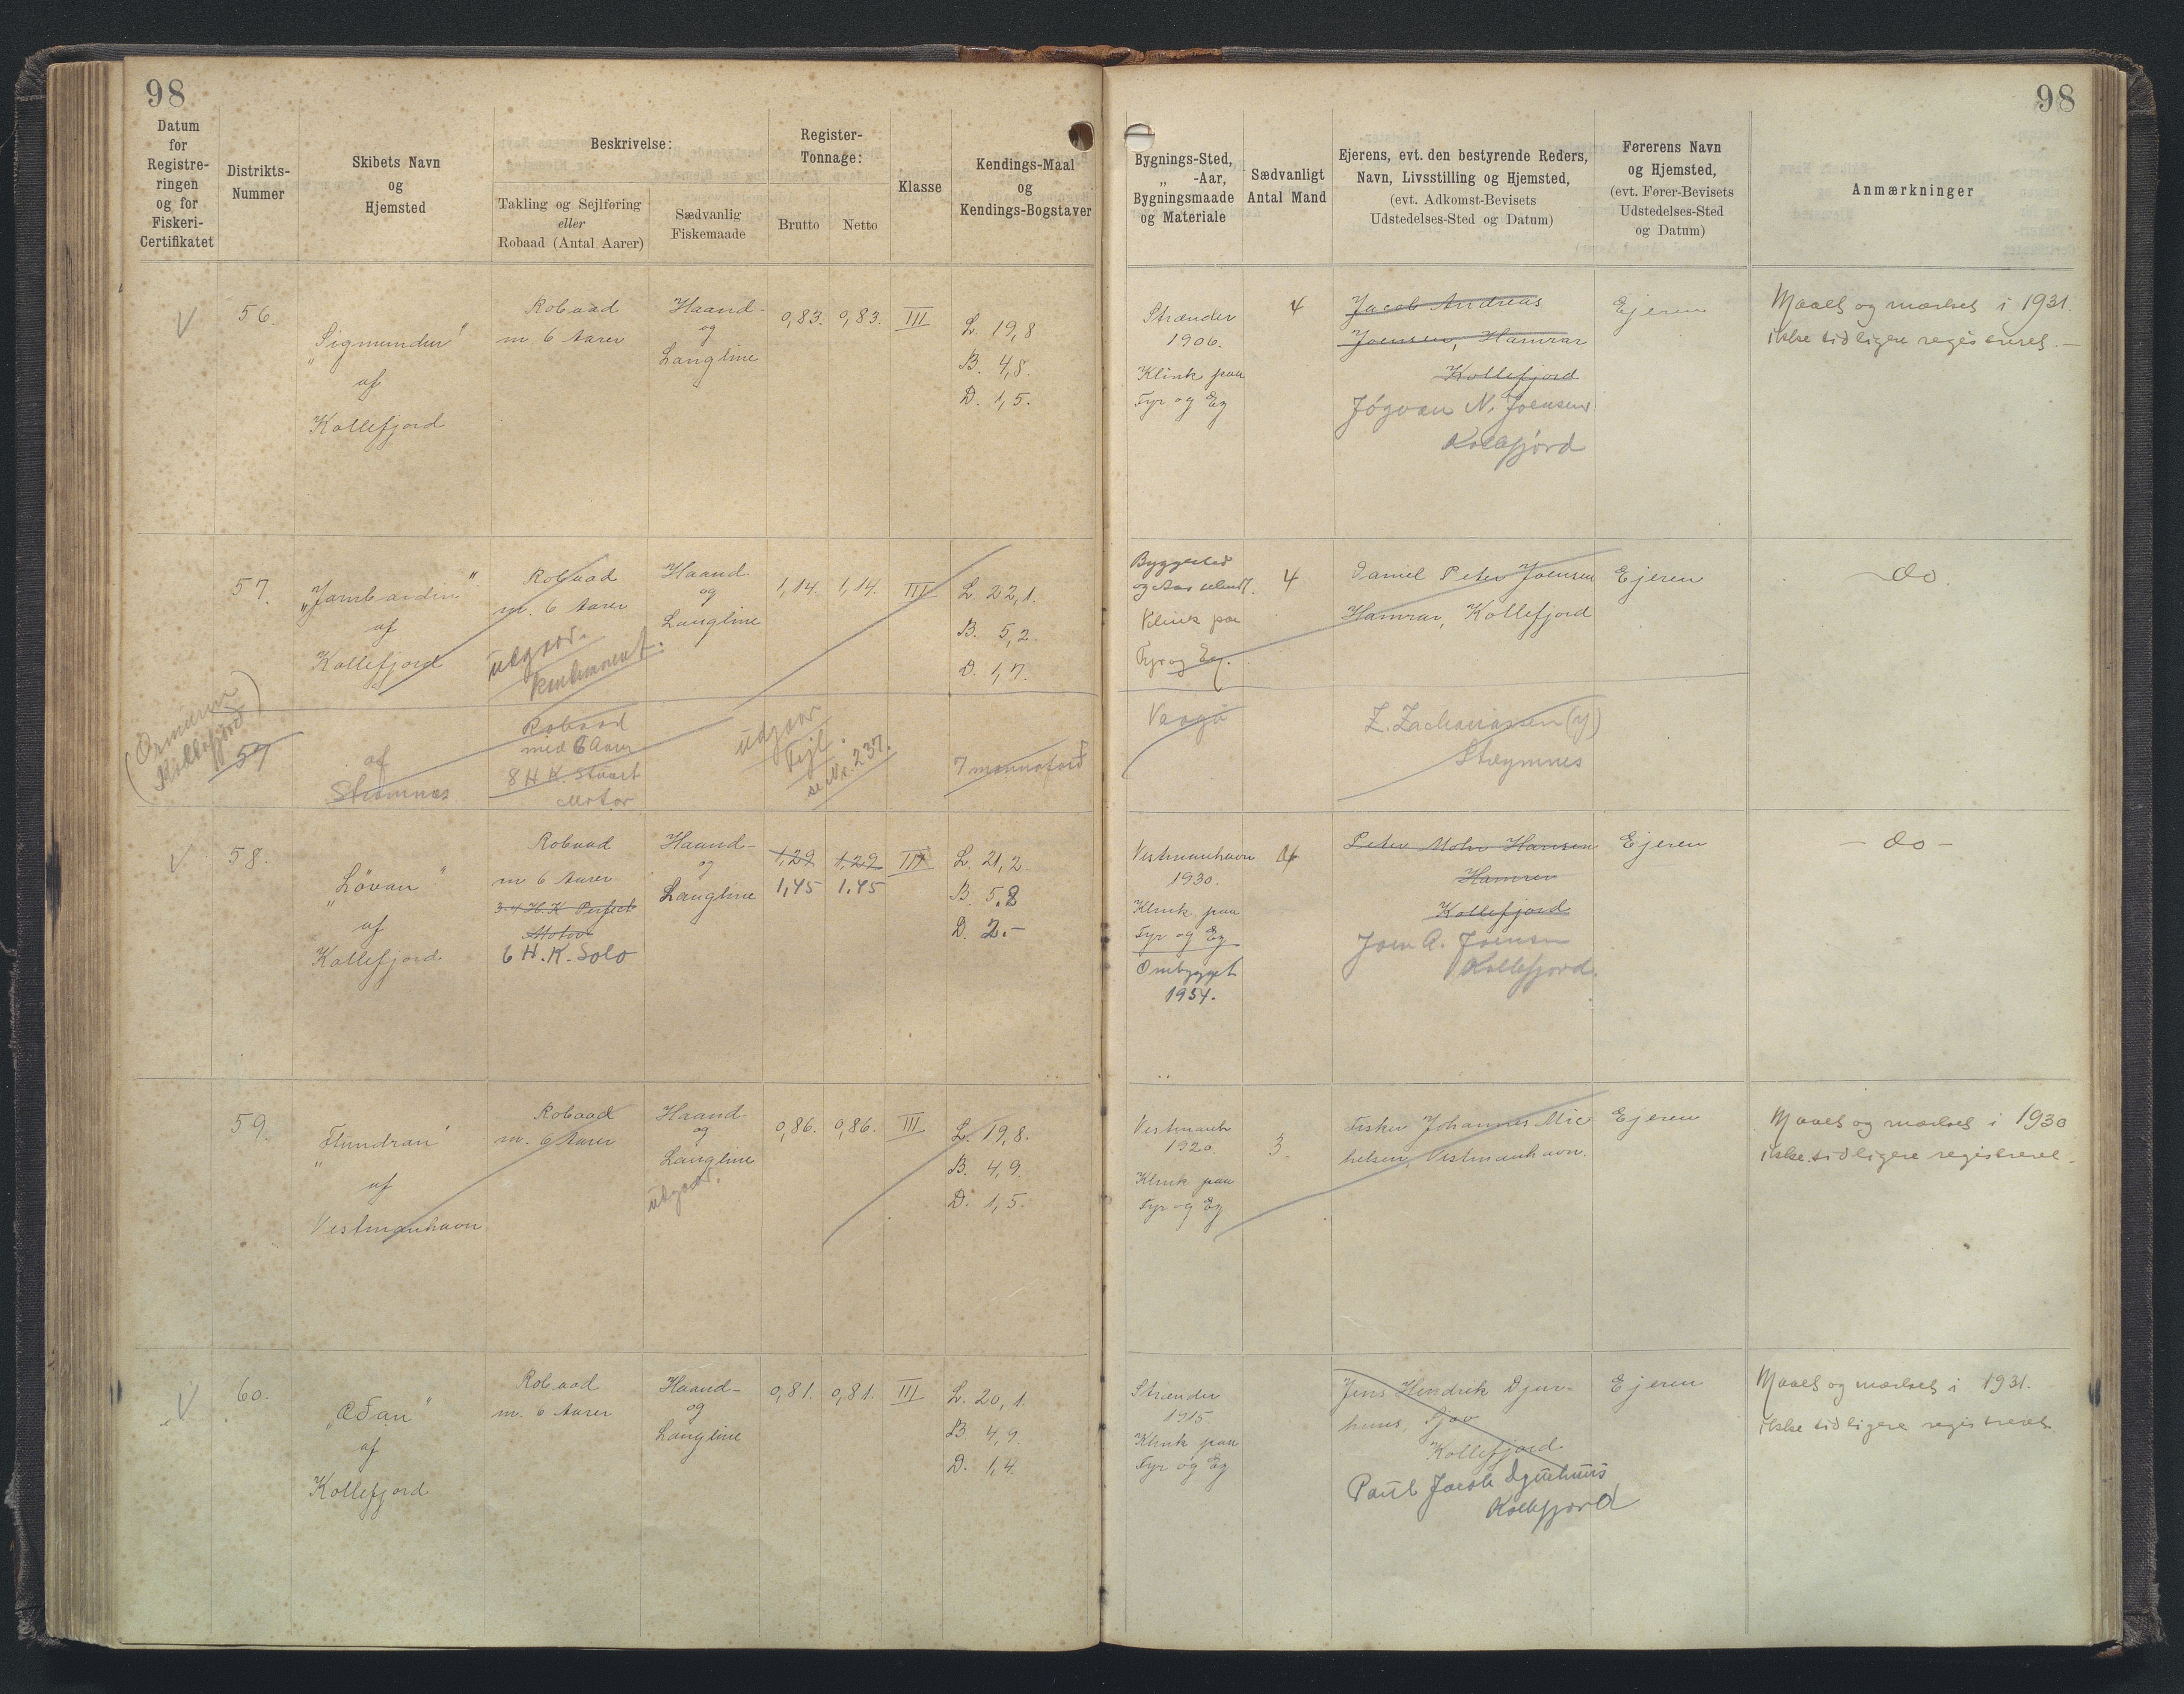 98
98
Datum
for
Registre-
ringen
og for
Fiskeri-
Certifikatet
Distrikts-
Nummer
Skibets Navn
og
Hjemsted
Beskrivelse:
Takling og Sejlføring
eller
Robaad (Antal Aarer)
Sædvanlig
Fiskemaade
Register-
Tonnage:
Brutto
Netto
Klasse
Kendings-Maal
og
Kendings-Bogstaver
Bygnings-Sted,
„ -Aar,
Bygningsmaade
og Materiale
Sædvanligt
Antal Mand
Ejerens, evt. den bestyrende Reders,
Navn, Livsstilling og Hjemsted,
(evt. Adkomst-Bevisets
Udstedelses-Sted og Datum)
Førerens Navn
og Hjemsted,
(evt. Fører-Bevisets
Udstedelses-Sted
og Datum)
Anmærkninger
56.
„Sigmundur"
af
Kollefjord
Robaad
m. 6 Aarer
Haand-
og
Langline
0,83.
0,83.
III
L. 19,8
B. 4,8.
D. 1,5.
Strænder
1906.
Klink paa
Fyr og Eg
4
Jacob Andreas
Joensen, Hamrar
Kollefjord
Jógvan N. Joensen
Kollefjörd
Ejeren
Maalt og mærket i 1931.
ikke tidligere registreret.—
57.
„Jambardin"
af
Kollefjord
Robaad
m. 6 Aarer
udgaar.
Kondemneret.
Haand-
og
Langline
1,14.
1,14.
III
L. 22,1.
B. 5,2.
D. 1,7.
Byggested
og Aar ubendt.
Klink paa
Fyr og Eg.
4
Daniel Peter Joensen
Hamrar, Kollefjord
Ejeren
do.
(Ormurin
Kollefjord)
57
af
Strømnæs
Robaad
med 6 Aarer
8 H.K. Stuart
Motor
udgaar
Fejl.
se Nr. 237.
7 mannafar
Vaagö
Z. Zachariassen (y)
Streymnes
58.
„Lövan"
af
Kollefjord
Robaad
m 6 Aarer
3-4 H.K Perfect
Motor
6 H.K. Solo
Haand-
og
Langline
1,29
1,45
1,29
1.45
III
L. 21,2
B. 5,8
D. 2.-
Vestmanhavn
1930.
Klink paa
Fyr og Eg
Ombygget
1934.
4
Peter Mohr Hansen
Hamrar
Kollefjord
Joen A. Joensen
Kollefjord.
Ejeren
- do -
59.
„Flundran"
af
Vestmanhavn
Robaad
m. 6 Aarer
Haand-
og
Langline
udgaar.
0,86.
0,86.
III
L. 19,8.
B. 4,9.
D. 1,5.
Vestmanh
1920.
Klink paa
Fyr og Eg
3
Fisker Johannes Mic
helsen, Vestmanhavn.
Ejeren
Maalt og mærket i 1930
ikke tidligere registreret.
60.
„Æðan"
af
Kollefjord
Robaad
m. 6 Aarer
Haand-
og
Langline
0,81.
0,81.
III
L. 20,1.
B. 4,9.
D. 1,4.
Strænder
1915.
Klink paa
Fyr og Eg
Jens Hendrik Djur-
huus, Gjov
Kollefjord
Paul Jacob Djurhuus
Kollefjord
Ejeren
Maalt og mærket i 1931.
ikke tidligere registreret.